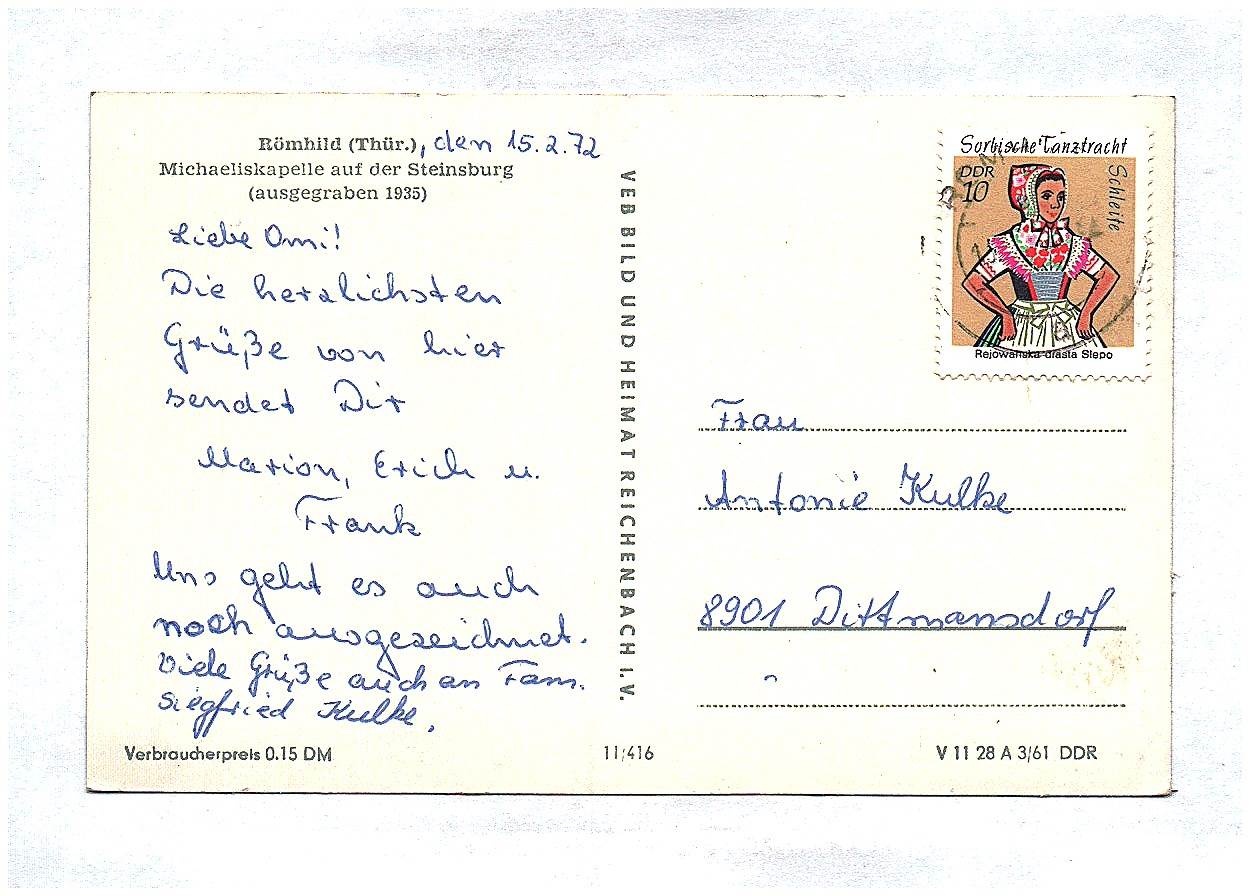 Römhild (Thür.), den 15.2.72
Michaeliskapelle auf der Steinsburg
(ausgegraben 1935)
Liebe Omi!
Die herzlichsten
Grüße von hier
sendet Dir
Marion, Erich u.
Frank
Uns geht es auch
noch ausgezeichnet.
Viele Grüße auch an Fam.
Siegfried Kulke.
Verbraucherpreis 0.15 DM
11/416
VEB BILD UND HEIMAT REICHENBACH I. V.
Sorbische Tanztracht
Schleife
DDR
10
Rejowanska drasta Slepo
Frau
Antonie Kulke
8901 Dittmansdorf
V 11 28 A 3/61 DDR